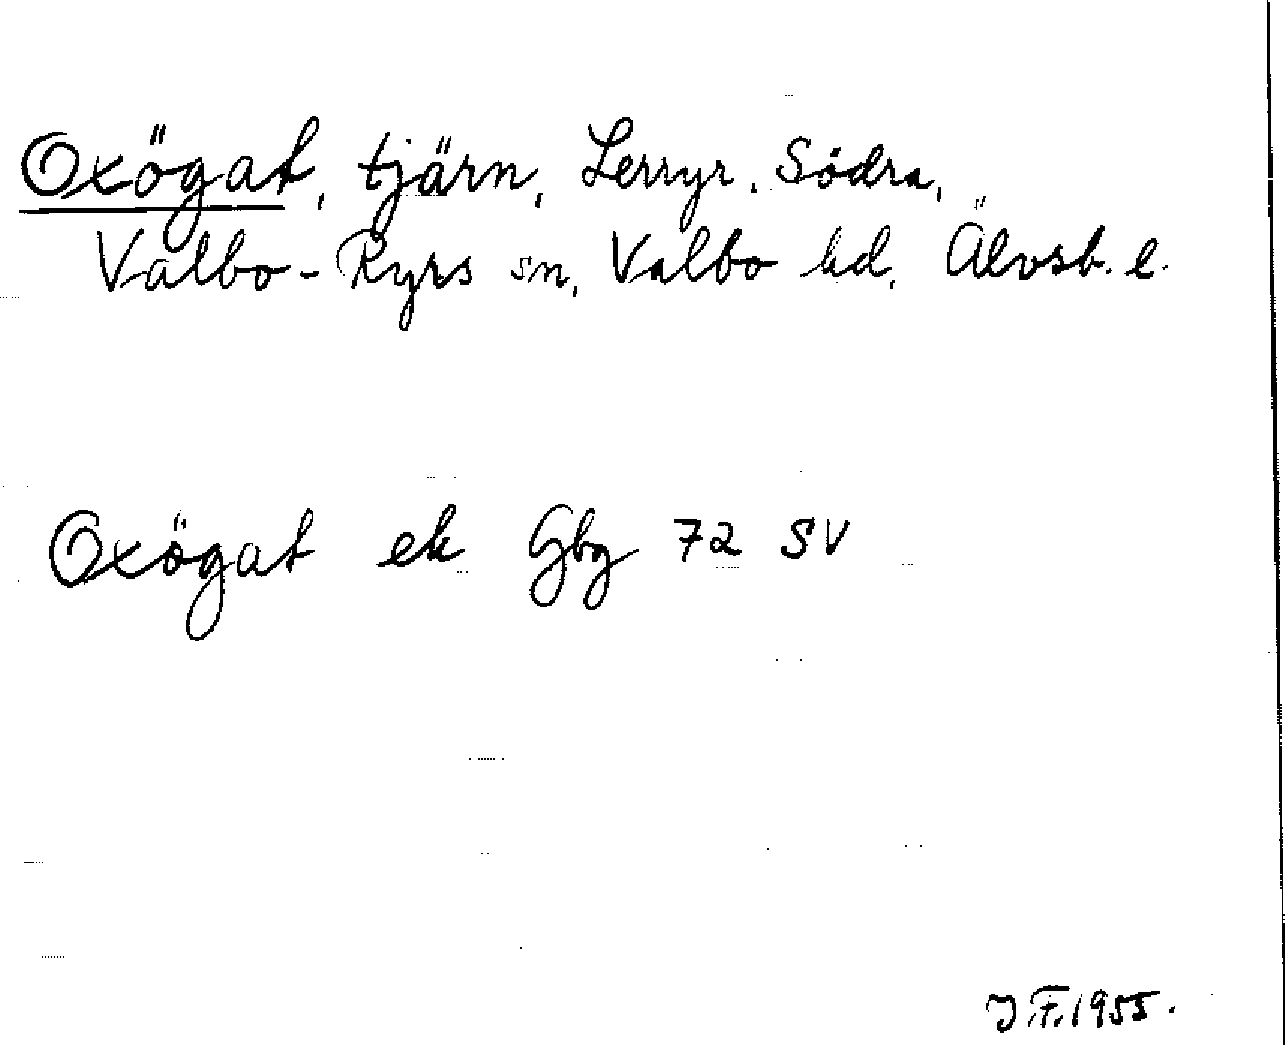 Oxögat, tjärn, Lerryr, Södra,
Valbo-Ryrs sn, Valbo hd, Älvsb. l.
Oxögat ek Gbg 72 SV
J F. 1955.